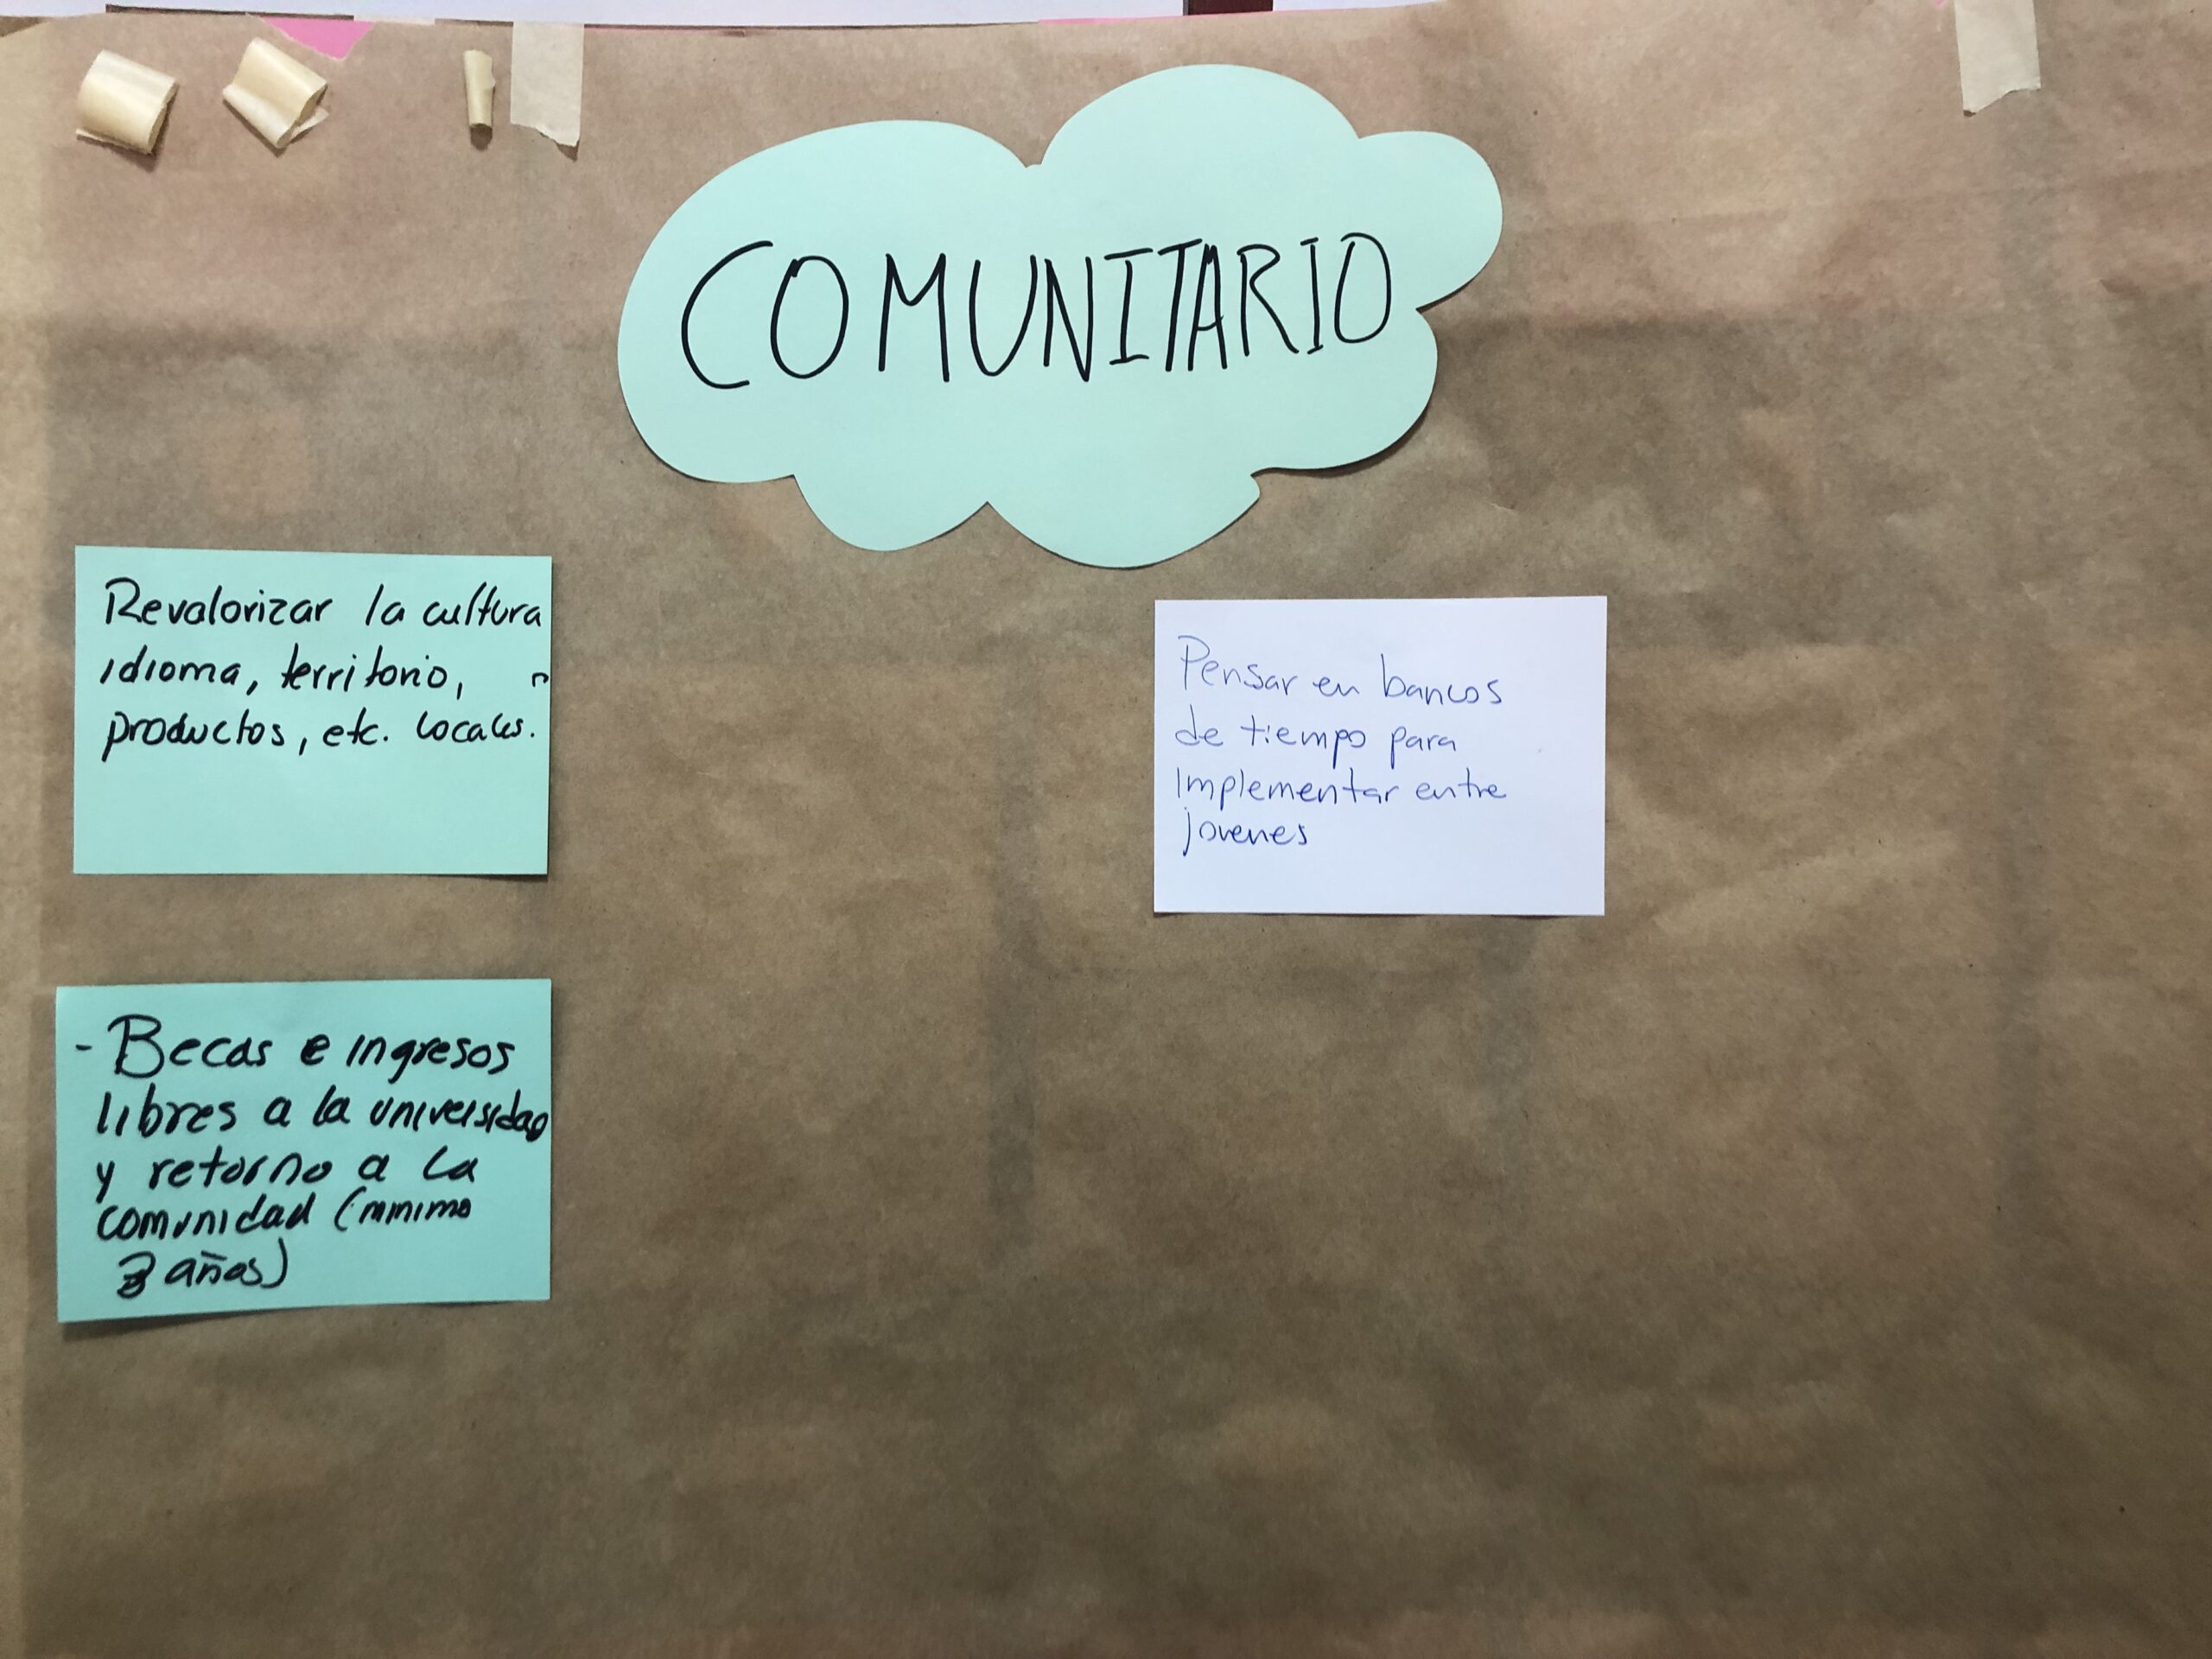 COMUNITARIO
Revalorizar la cultura
idioma, territorio,
productos, etc. locales.
Pensar en bancos
de tiempo para
implementar entre
jovenes
- Becas e ingresos
libres a la universidad
y retorno a la
comunidad (minimo
3 años)